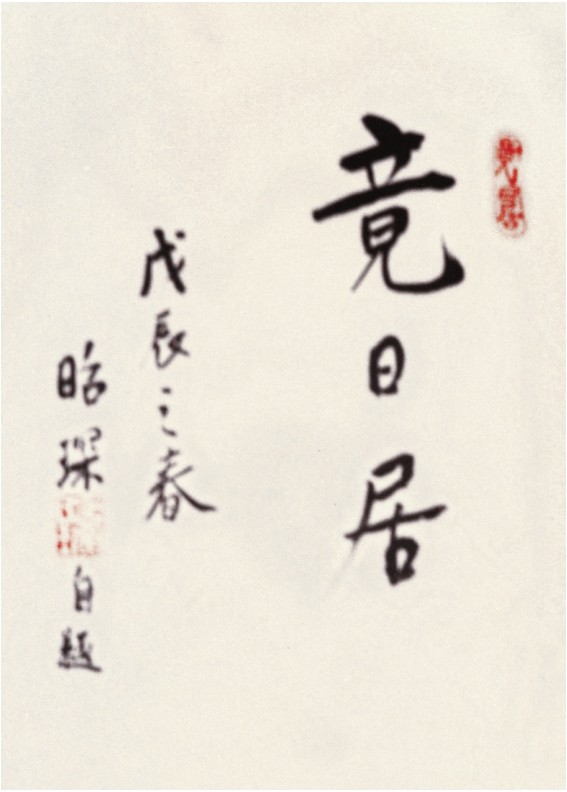 竟日居
戊辰之春
昭琛自题